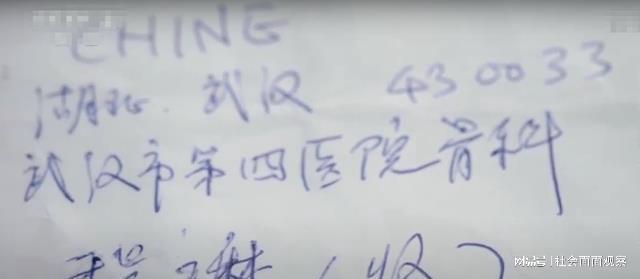 CHINE
湖北 武汉 430033
武汉市第四医院骨科
程琳（收）
搜狐号@社会面面观察